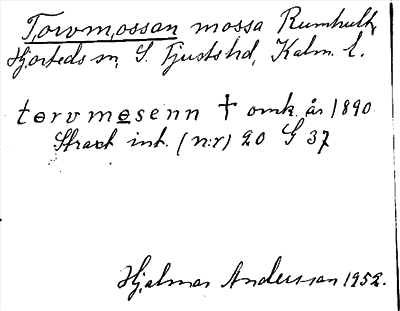 Torvmossan mossa Rumhult,
Hjorteds sn, S. Tjusts hd, Kalm. l.
torvmosenn † omk. år 1890
Straxt int. (n:r) 20 G 37
Hjalmar Andersson 1952.